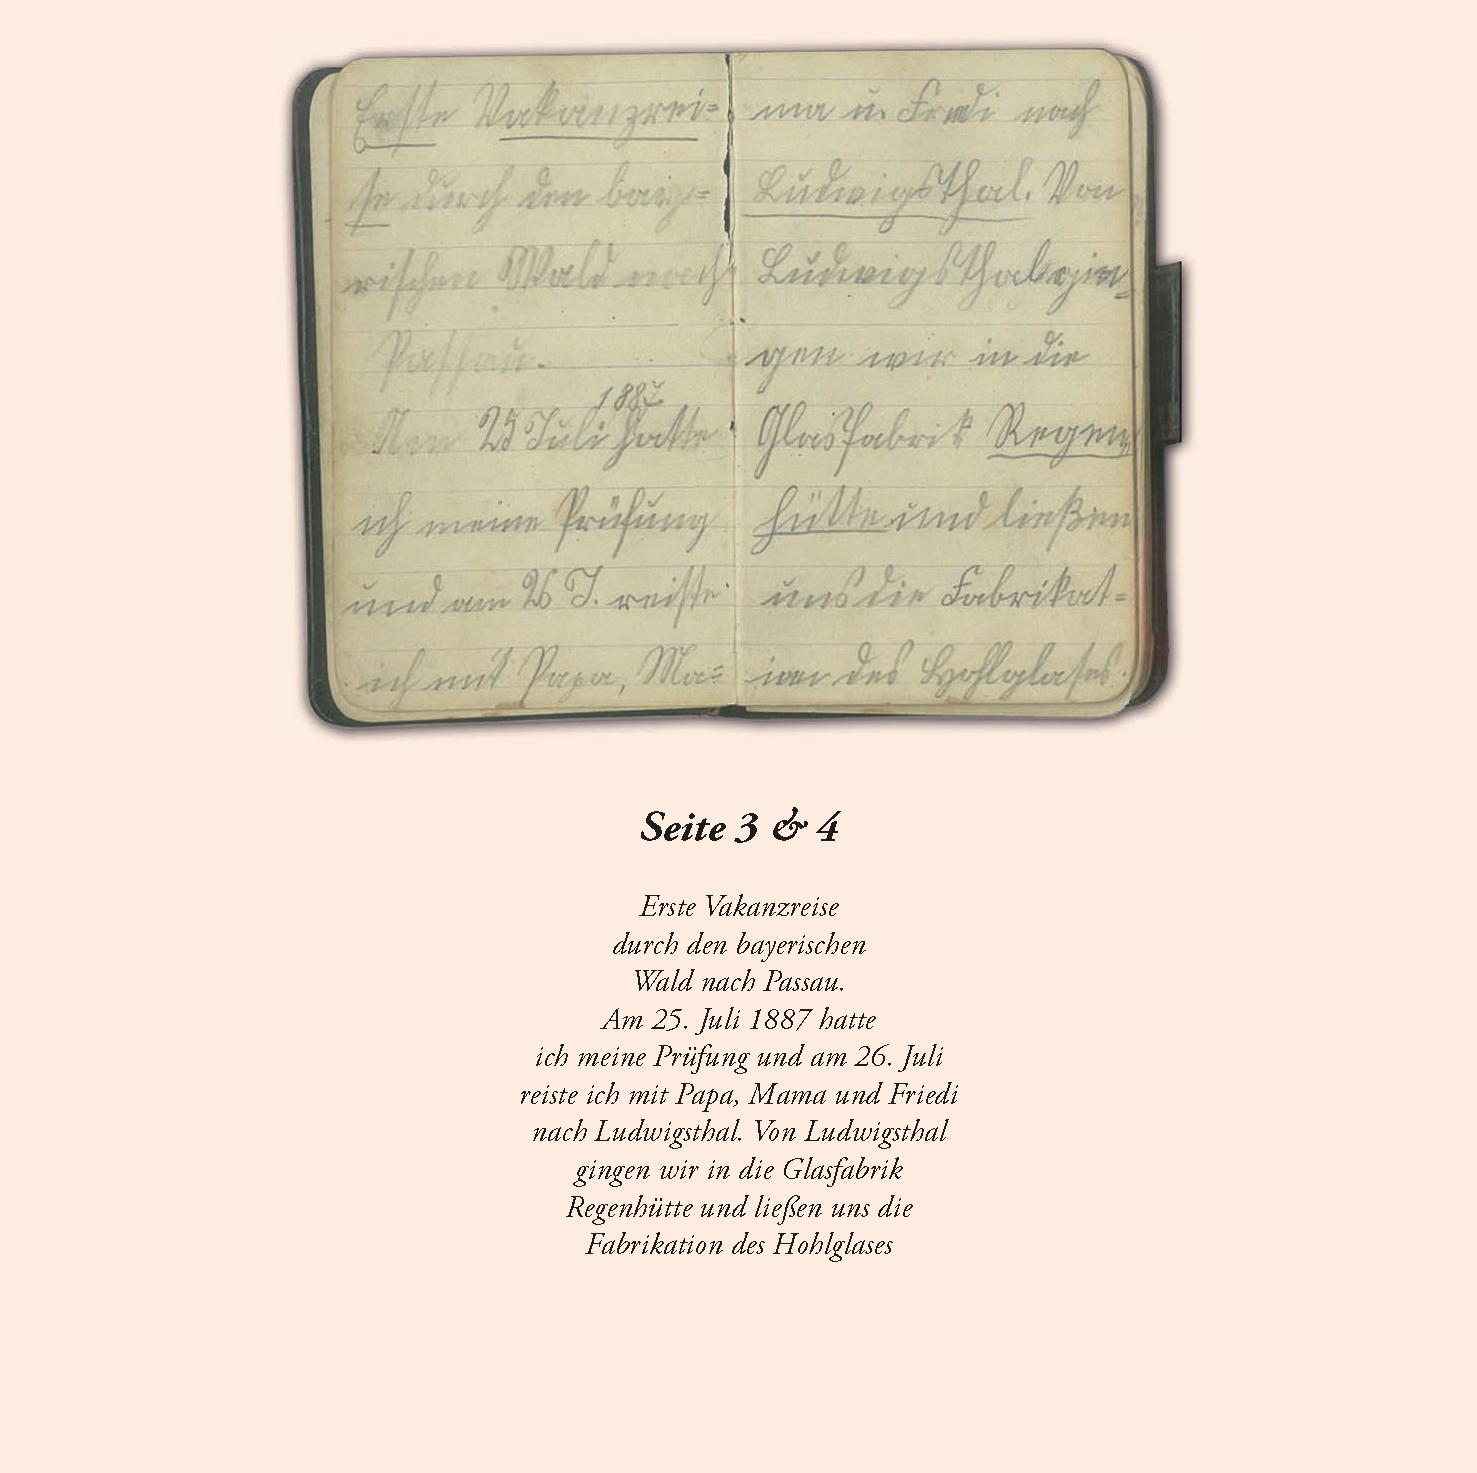 Erste Vakanzrei=
se durch den baye=
rischen Wald nach
Passau.
1887
Am 25 Juli hatte
ich meine Prüfung
und am 26 J. reiste
ich mit Papa, Ma=
ma u. Friedi nach
Ludwigsthal. Von
Ludwigsthal gin=
gen wir in die
Glasfabrik Regen
hütte und ließen
uns die Fabrikat=
ion des Hohlglases
Seite 3 & 4
Erste Vakanzreise
durch den bayerischen
Wald nach Passau.
Am 25. Juli 1887 hatte
ich meine Prüfung und am 26. Juli
reiste ich mit Papa, Mama und Friedi
nach Ludwigsthal. Von Ludwigsthal
gingen wir in die Glasfabrik
Regenhütte und ließen uns die
Fabrikation des Hohlglases